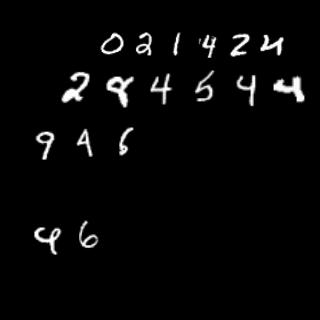 021424
284544
946
96